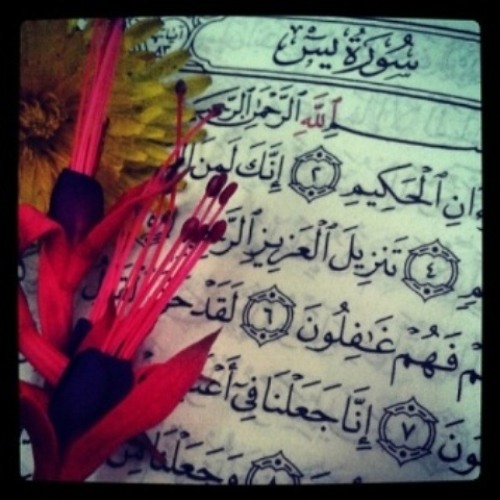 سُورَةُ يسٓ
ٱللَّهِ ٱلرَّحْمَٰنِ ٱلرَّحِيمِ
ٱلْحَكِيمِ ٢ إِنَّكَ لَمِنَ
٤ تَنزِيلَ ٱلْعَزِيزِ ٱلرَّحِيمِ
فَهُمْ غَٰفِلُونَ ٦ لَقَدْ حَقَّ
٧ إِنَّا جَعَلْنَا فِىٓ
٨ وَجَعَلْنَا مِنۢ